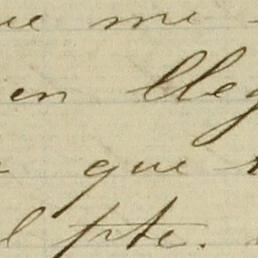 ue me
en lleg
que
l pte.